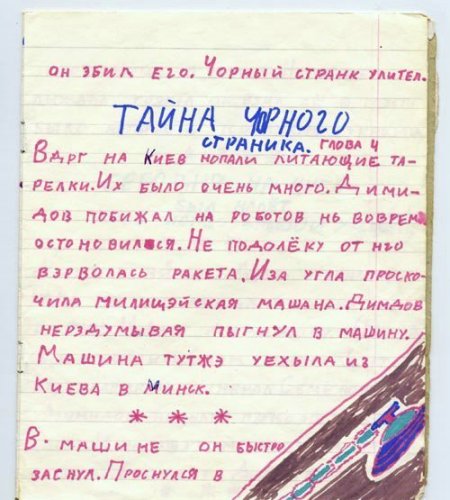 ОН ЭБИЛ ЕГО. ЧОРНЫЙ СТРАНК УЛИТЕЛ.
ТАЙНА ЧОРНОГО
СТРАНИКА. ГЛОВА 4
ВДРГ НА КИЕВ НОПАЛИ ЛИТАЮЩИЕ ТА-
РЕЛКИ. ИХ БЫЛО ОЧЕНЬ МНОГО. ДИМИ-
ДОВ ПОБИЖАЛ НА РОБОТОВ НЬ ВОВРЕМ
ОСТОНОВИЛСЯ. НЕ ПОДОЛЁКУ ОТ НЕГО
ВЗРВОЛАСЬ РАКЕТА. ИЗА УГЛА ПРОСКО-
ЧИЛА МИЛИЩЭЙСКАЯ МАШАНА. ДИМДОВ
НЕРЭДУМЫВАЯ ПЫГНУЛ В МАШИНУ.
МАШИНА ТУТЖЭ УЕХЫЛА ИЗ
КИЕВА В МИНСК.
* * *
В. МАШИНЕ ОН БЫСТРО
ЗАСНУЛ. ПРОСНУЛСЯ В